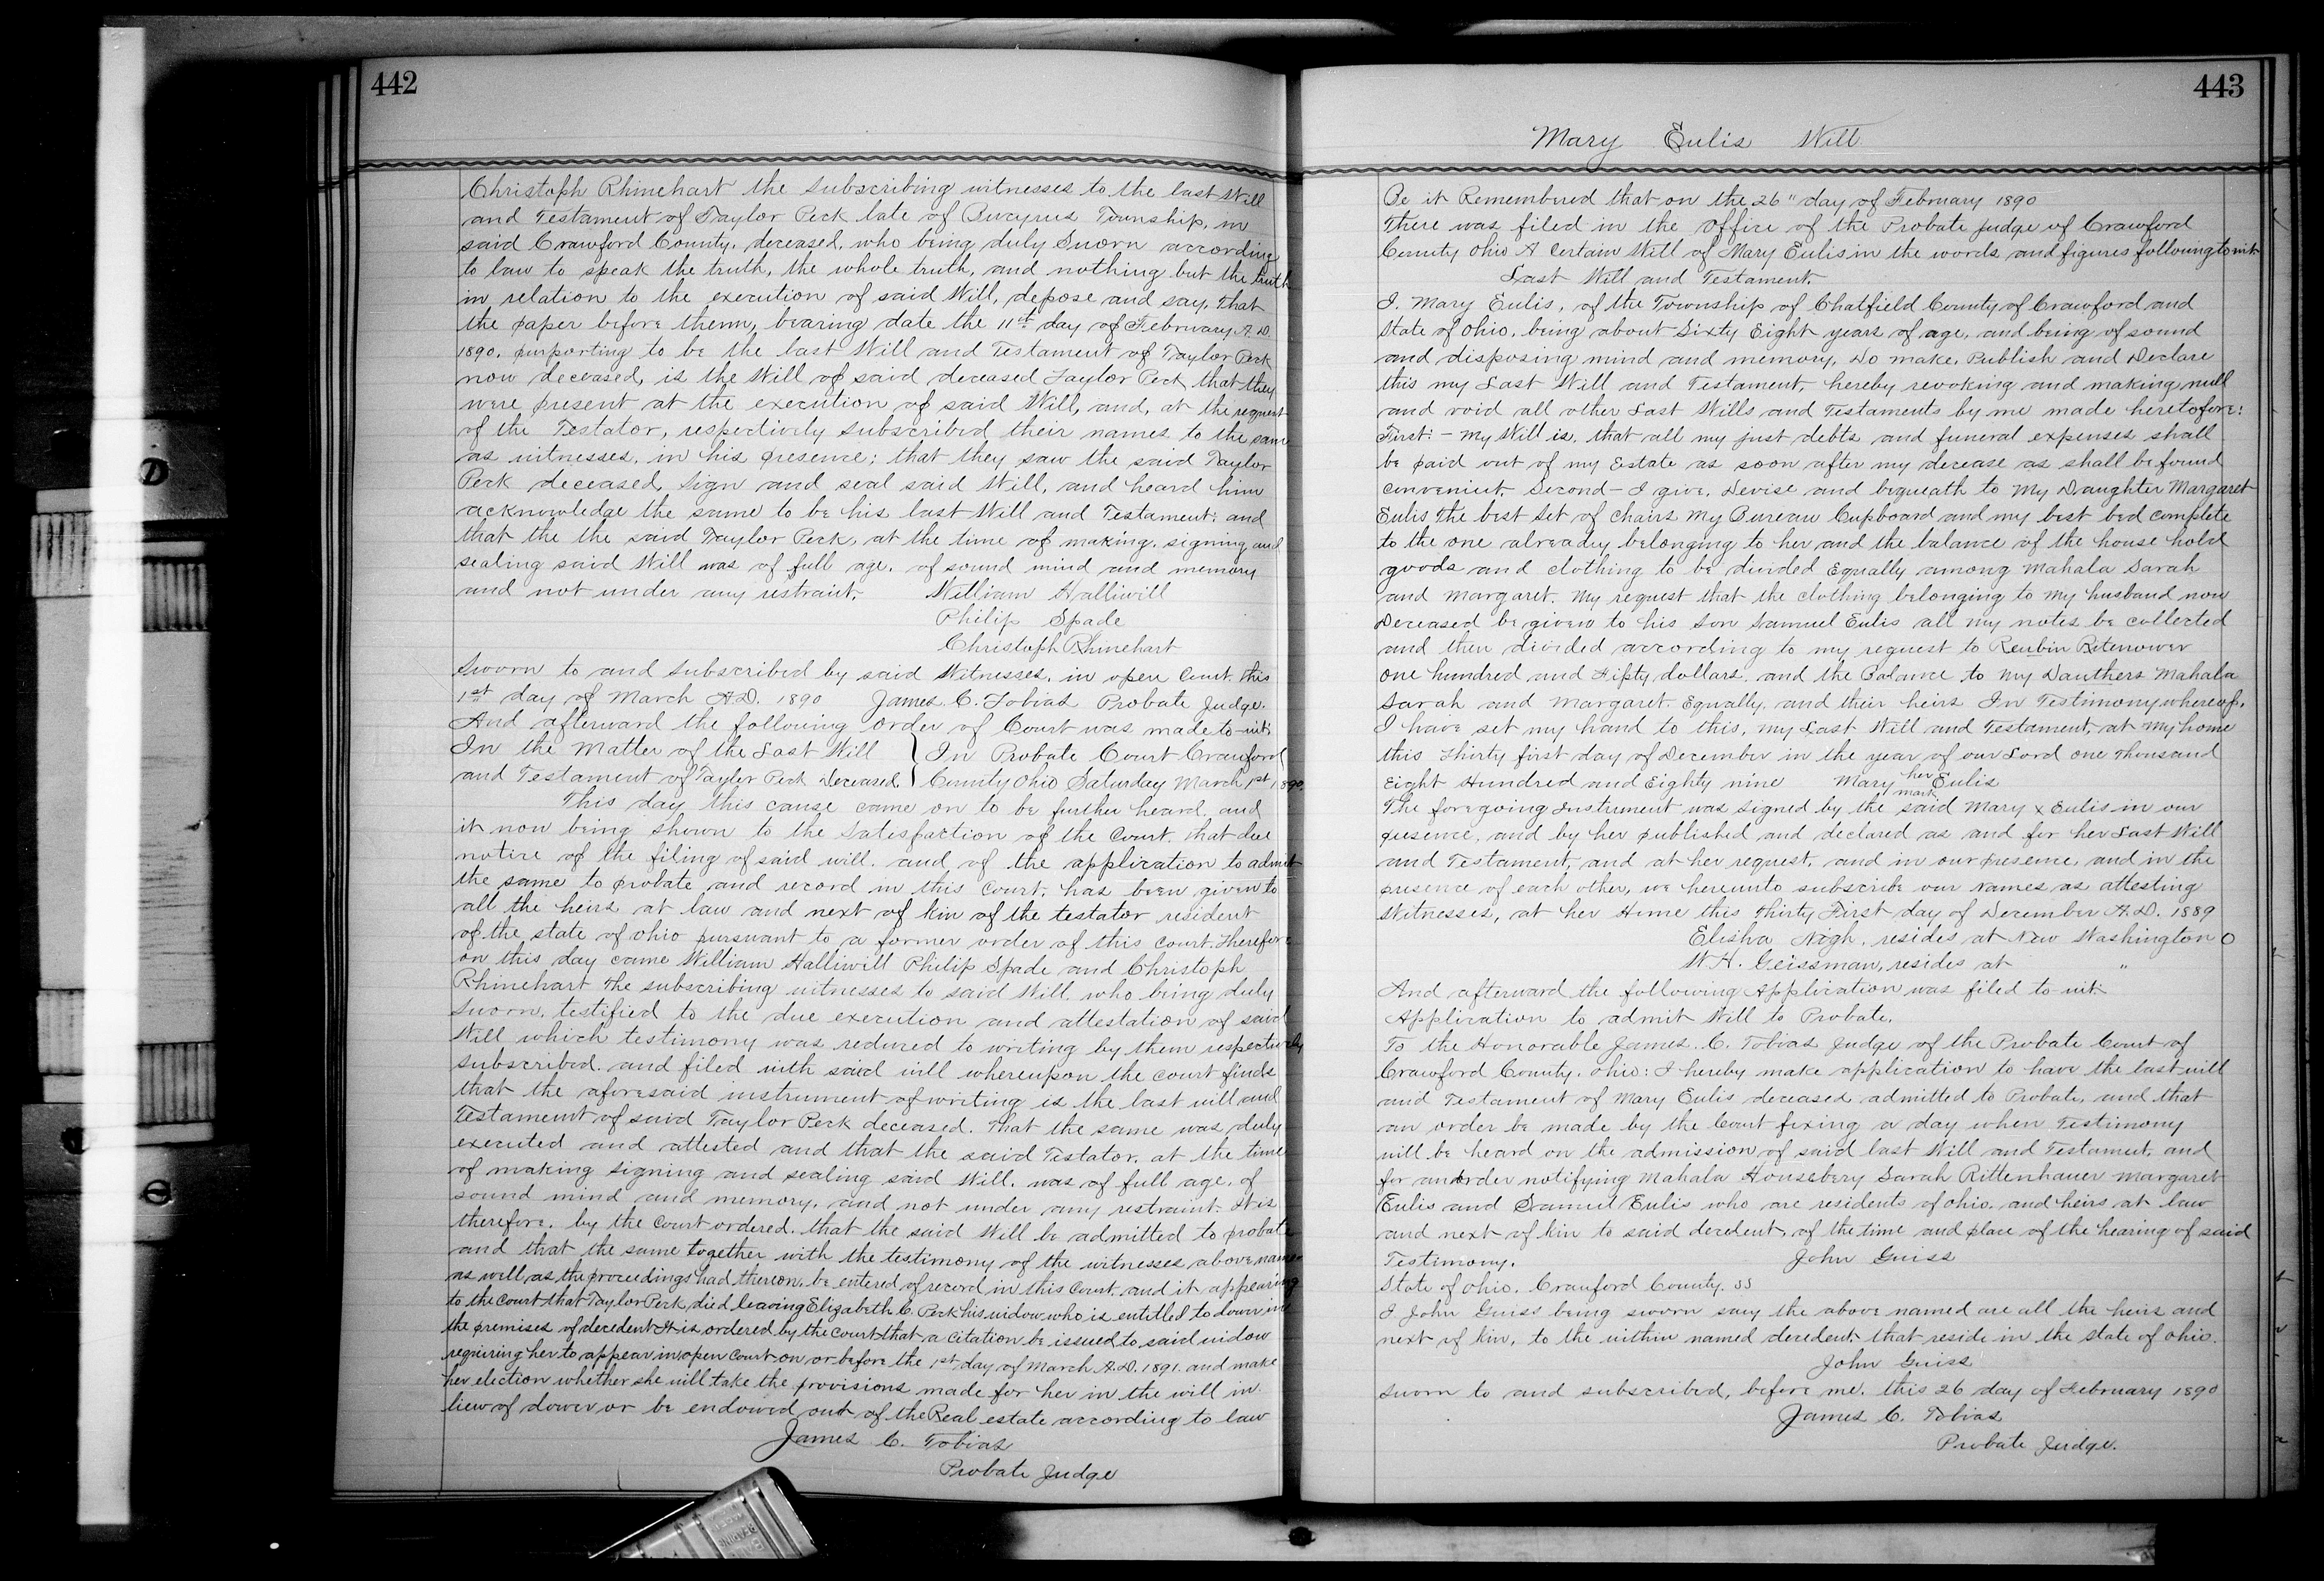 442
Christoph Rhinehart the subscribing witnesses to the last Will
and Testament of Taylor Peck late of Bucyrus Township, in
said Crawford County, deceased, who being duly Sworn according
to law to speak the truth, the whole truth, and nothing but the truth
in relation to the execution of said Will, depose and say, that
the paper before themn, bearing date the 11th day of February A.D.
1890, purporting to be the last Will and Testament of Taylor Peck
now deceased, is the Will of said deceased Taylor Peck that they
were present at the execution of said Will, and, at the request
of the Testator, respectively subscribed their names to the same
as witnesses, in his presence; that they saw the said Taylor
Peck deceased, sign and seal said Will, and heard him
acknowledge the same to be his last Will and Testament; and
that the the said Taylor Peck, at the time of making, signing and
sealing said Will was of full age, of sound mind and memory
and not under any restraint. William Halliwill
Philip Spade
Christoph Rhinehart
Sworn to and subscribed by said Witnesses, in open Court, this
1st day of March A.D. 1890 James C. Tobias Probate Judge.
And afterward the following Order of Court was made to-wit:
In the Matter of the Last Will } In Probate Court Crawford
and Testament of Taylor Peck Deceased } County Ohio Saturday March 1st 1890
This day this cause came on to be further heard, and
it now being shown to the satisfaction of the Court, that due
notice of the filing of said will, and of the application to admit
the same to probate and record in this Court, has been given to
all the heirs at law and next of kin of the testator resident
of the state of Ohio pursuant to a former order of this Court. Therefore
on this day came William Halliwill Philip Spade and Christoph
Rhinehart the subscribing witnesses to said Will, who being duly
Sworn, testified to the due execution and attestation of said
Will which testimony was reduced to writing by them respectively
subscribed, and filed with said will whereupon the court finds
that the aforesaid instrument of writing is the last will and
Testament of said Taylor Peck deceased. That the same was duly
executed and attested and that the said Testator, at the time
of making signing and sealing said Will, was of full age, of
sound mind and memory, and not under any restraint. It is
therefore, by the Court ordered, that the said Will be admitted to probate
and that the same together with the testimony of the witnesses above named
as well as the proceedings had thereon, be entered of record in this Court, and it appearing
to the Court that Taylor Peck, died leaving Elizabeth C. Peck his widow who is entitled to dower in
the premises of decedent It is ordered by the Court that a Citation be issued to said widow
requiring her to appear in open Court on or before the 1st day of March A.D. 1891, and make
her election whether she will take the provisions made for her in the will in
lieu of dower or be endowed out of the Real estate according to law
James C. Tobias
Probate Judge
443
Mary Eulis Will
Be it Remembered that on the 26" day of February 1890
There was filed in the Office of the Probate Judge of Crawford
County Ohio A Certain Will of Mary Eulis in the words and figures following to wit
Last Will and Testament.
I, Mary Eulis, of the Township of Chatfield County of Crawford and
State of Ohio, being about Sixty Eight years of age, and being of sound
and disposing mind and memory, Do make, Publish and Declare
this my Last Will and Testament, hereby revoking and making null
and void all other Last Wills and Testaments by me made heretofore:
First:- My Will is, that all my just debts and funeral expenses shall
be paid out of my Estate as soon after my decease as shall be found
convenient. Second- I give, Devise and bequeath to My Daughter Margaret
Eulis The best Set of Chairs My Bureau Cupboard and my best bed complete
to the one already belonging to her and the balance of the house hold
goods and clothing to be divided Equally among Mahala Sarah
and Margaret. My request that the clothing belonging to my husband now
Deceased be given to his Son Samuel Eulis all my notes be collected
and then divided according to my request to Reubin Ritenower
One hundred and Fifty dollars, and the Balance to my Dauthers Mahala
Sarah and Margaret. Equally, and their heirs In Testimony whereof,
I have set my hand to this, my Last Will and Testament, at My home
this Thirty first day of December in the year of our Lord One Thousand
Eight Hundred and Eighty nine Mary her mark Eulis
The foregoing Instrument was signed by the said Mary x Eulis in our
presence, and by her published and declared as and for her Last Will
and Testament, and at her request, and in our presence, and in the
presence of each other, we hereunto subscribe our Names as attesting
Witnesses, at her Home this Thirty First day of December A.D. 1889
Elisha Nigh, resides at New Washington O
W.H. Geissman, resides at "
And afterward the following Application was filed to-wit:
Application to admit Will to Probate.
To the Honorable James. C. Tobias Judge of the Probate Court of
Crawford County, Ohio: I hereby make application to have the last will
and Testament of Mary Eulis deceased admitted to Probate, and that
an order be made by the Court fixing a day when Testimony
will be heard on the admission of said last Will and Testament, and
for an order notifying Mahala Housebery Sarah Rittenhauer Margaret
Eulis and Samuel Eulis who are residents of Ohio, and heirs at law
and next of kin to said decedent, of the time and place of the hearing of said
Testimony. John Guiss
State of Ohio, Crawford County. SS
I John Guiss being sworn say the above named are all the heirs and
next of kin, to the within named decedent, that reside in the state of Ohio.
John Guiss
Sworn to and subscribed, before me, this 26 day of February 1890
James C. Tobias
Probate Judge.